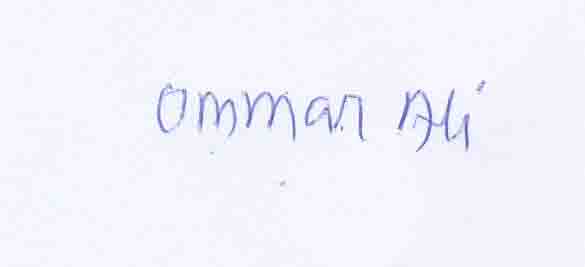 Ommar Ali